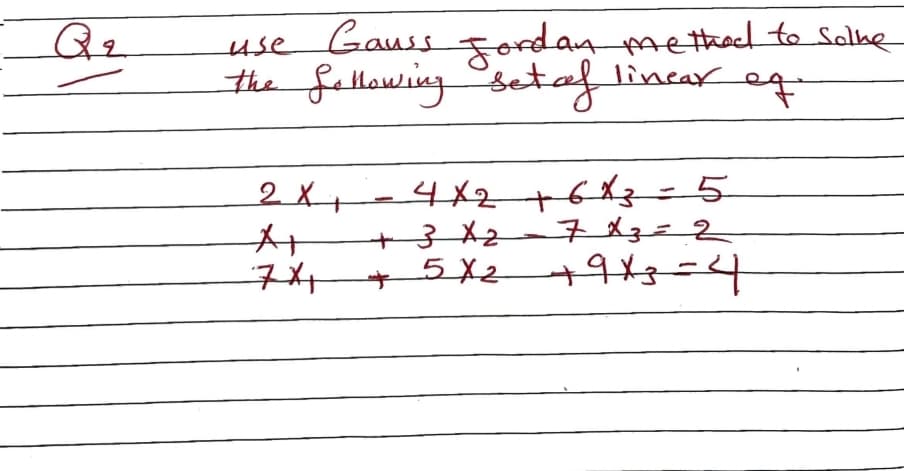 Q2 use Gauss Jordan method to Solve
the following set of linear eq.
2 X1 - 4 X2 + 6 X3 = 5
X1 + 3 X2 - 7 X3 = 2
7 X1 + 5 X2 + 9 X3 = 4